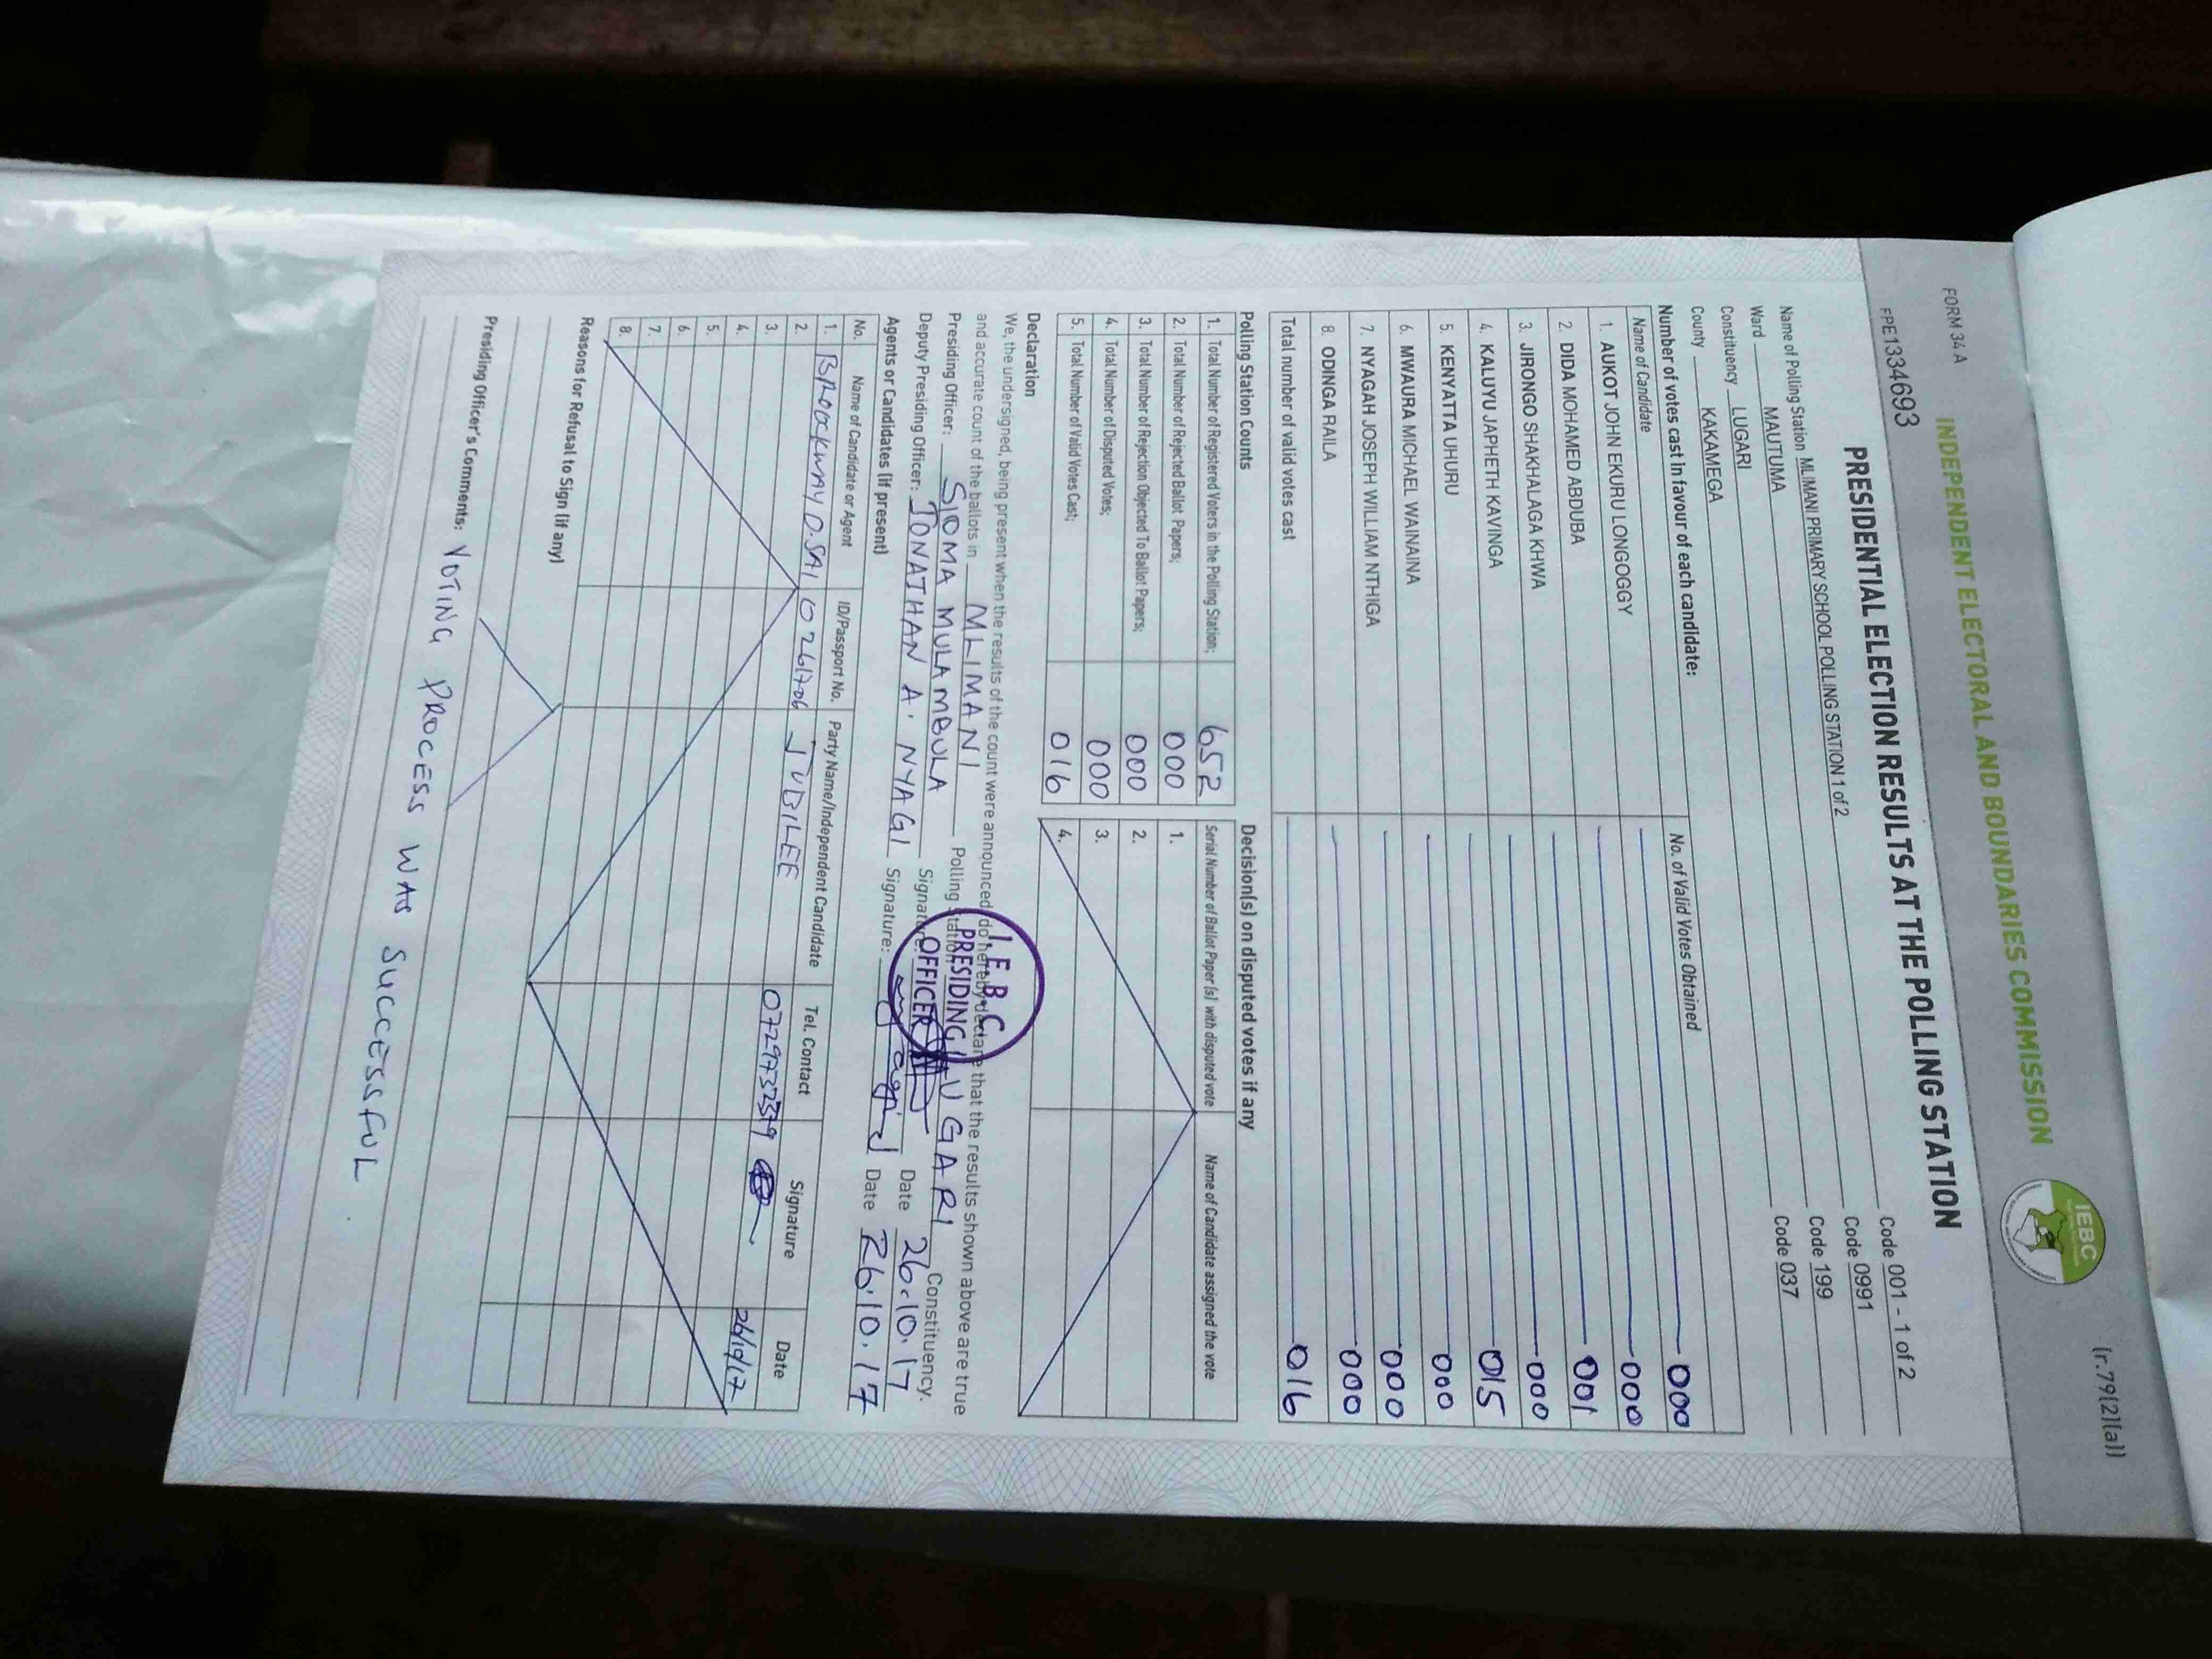 (r.79(2)(a))
FORM 34 A
INDEPENDENT ELECTORAL AND BOUNDARIES COMMISSION
IEBC
FPE1334693
PRESIDENTIAL ELECTION RESULTS AT THE POLLING STATION
Name of Polling Station MLIMANI PRIMARY SCHOOL POLLING STATION 1 of 2 Code 001 - 1 of 2
Ward MAUTUMA Code 0991
Constituency LUGARI Code 199
County KAKAMEGA Code 037
Number of votes cast in favour of each candidate:
Name of Candidate No. of Valid Votes Obtained
1. AUKOT JOHN EKURU LONGOGGY 000
2. DIDA MOHAMED ABDUBA 000
3. JIRONGO SHAKHALAGA KHWA 001
4. KALUYU JAPHETH KAVINGA 000
5. KENYATTA UHURU 015
6. MWAURA MICHAEL WAINAINA 000
7. NYAGAH JOSEPH WILLIAM NTHIGA 000
8. ODINGA RAILA 000
Total number of valid votes cast 016
Polling Station Counts Decision(s) on disputed votes if any
Serial Number of Ballot Paper (s) with disputed vote Name of Candidate assigned the vote
1. Total Number of Registered Voters in the Polling Station; 652 1.
2. Total Number of Rejected Ballot Papers; 000 2.
3. Total Number of Rejection Objected To Ballot Papers; 000 3.
4. Total Number of Disputed Votes; 000 4.
5. Total Number of Valid Votes Cast; 016
Declaration
We, the undersigned, being present when the results of the count were announced, do hereby declare that the results shown above are true
and accurate count of the ballots in MLIMANI Polling Station LUGARI Constituency.
Presiding Officer: SIOMA MULAMBULA Signature: Date 26.10.17
Deputy Presiding Officer: JONATHAN A. NYAGI Signature: Date 26.10.17
I.E.B.C
PRESIDING
OFFICER
Agents or Candidates (if present)
No. Name of Candidate or Agent ID/Passport No. Party Name/Independent Candidate Tel. Contact Signature Date
1. BROCKWAY O. SAI 10261706 JUBILEE 26/10/17
2.
3.
4.
5.
6.
7.
8.
Reasons for Refusal to Sign (if any)
Presiding Officer's Comments: VOTING PROCESS WAS SUCCESSFUL